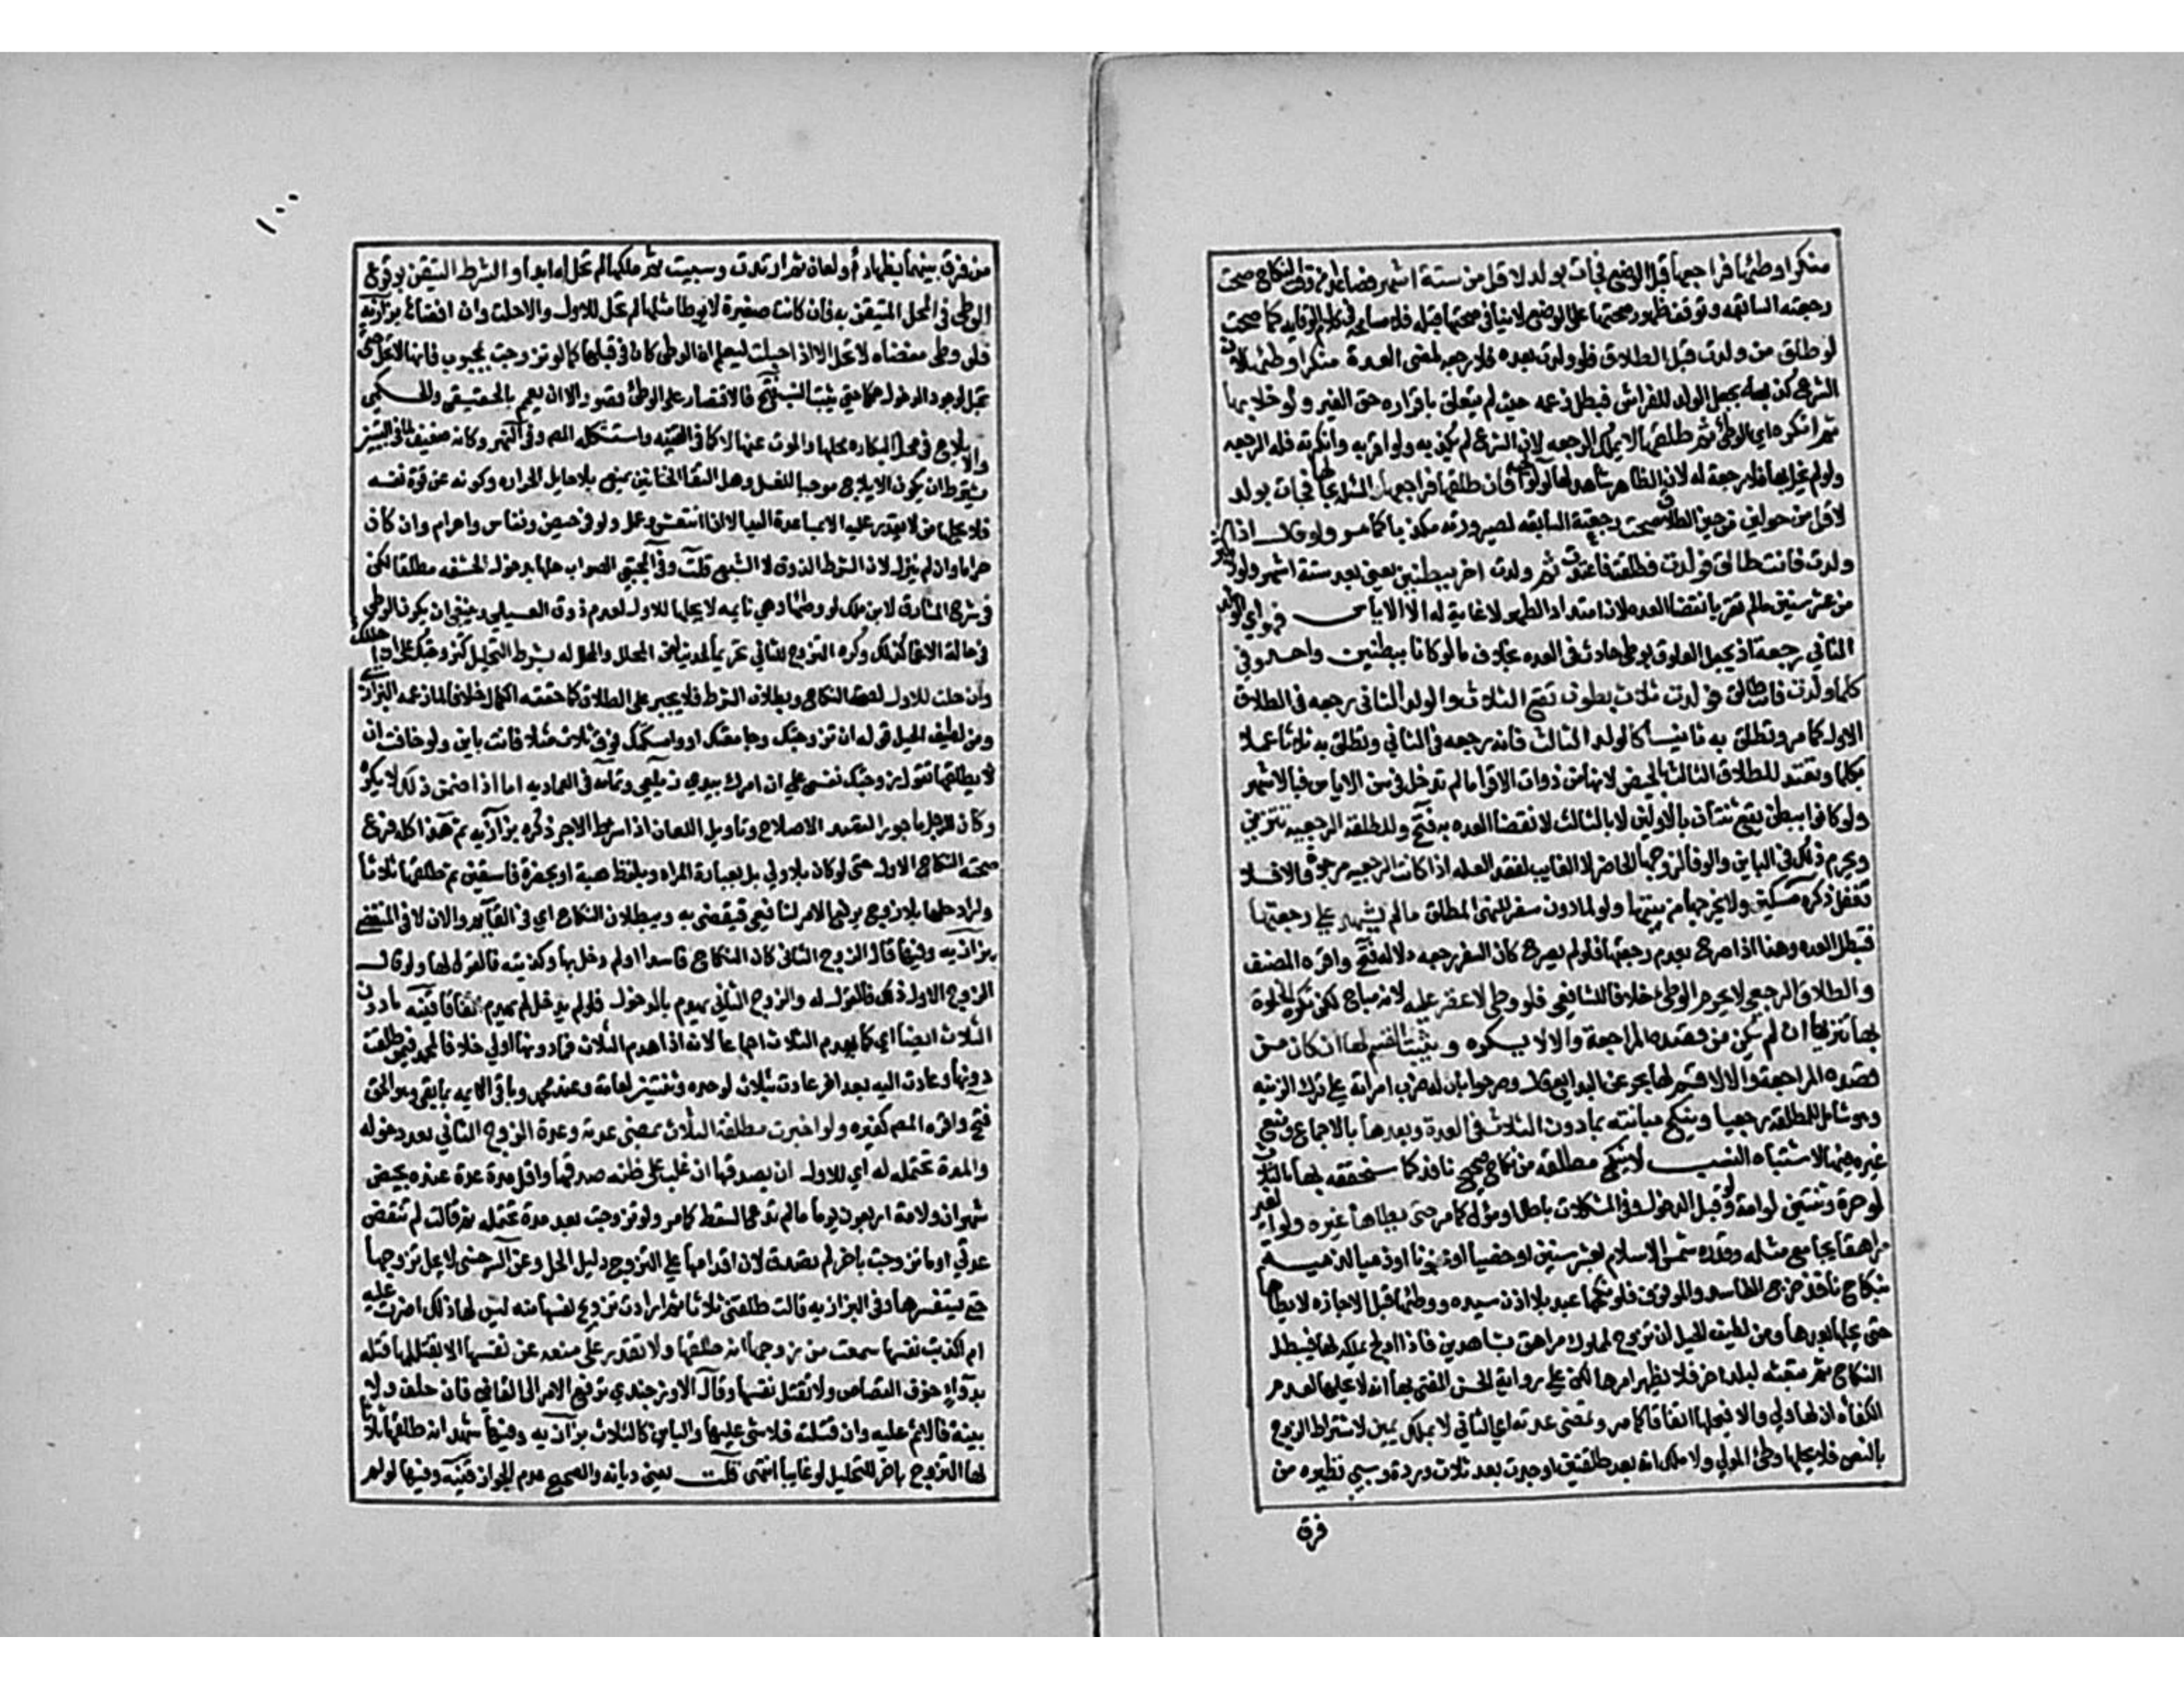 منكرا وطئها فراجعها قبل الوضع فجات بولد لاقل من ستة اشهر فصاعدا من وقت النكاح صحت
رجعته السابقه وتوقف ظهور صحتها على الوضع لا ينافي صحتها قبله فلا مسامحه في كلام الوقايه كما صحت
لو طلق من ولدت قبل الطلاق فلو ولدت بعده فلا رجعه لمضى العدة منكرا وطئها لان
الشرع كذبه بجعل الولد للفراش فبطل زعمه حيث لم يتعلق باقراره حق الغير ولو خلا بها
ثم انكره اي الوطئ ثم طلقها لا يملك الرجعه لان الشرع لم يكذبه ولو اقر به وانكرته فله الرجعه
ولو لم يخل بها فلا رجعة له لان الظاهر شاهد لها فان طلقها فراجعها فجات بولد
لاقل من حولين من حين الطلاق صحت رجعته السابقه لصيرورته مكذبا كما مر ولو قال اذا
ولدت فانت طالق فولدت فطلقت فاعتدت ثم ولدت اخر ببطنين يعني بعد ستة اشهر ولو لاكثر
من عشر سنين مالم تقر بانقضا العده لان امتداد الطهر لا غاية له الا الاياس فهو اي الولد
الثاني رجعة اذ يجعل العلوق بوطى حادث في العده بخلاف ما لو كانا ببطن واحد وفي
كلما ولدت فانت طالق فولدت ثلاث بطون تقع الثلاث والولد الثاني رجعه في الطلاق
الاول كما مر وتطلق به ثانيا كالولد الثالث فانه رجعه في الثاني وتطلق به ثلاثا عملا
بكلما وتعتد للطلاق الثالث بالحيض لانها من ذوات الاقرا مالم تدخل في سن الاياس فبالاشهر
ولو كانوا ببطن يقع ثنتان بالاولين لا بالثالث لانقضا العده به فتح والمطلقة الرجعيه تتزين
ويحرم ذلك في الباين والوفا لزوجها الحاضر لا الغايب لفقد العله اذا كانت الرجعيه مرجوة والا فلا
تفعل ذكره مسكين ولا يخرجها من بيتها ولو لما دون سفر للنهى المطلق مالم يشهد على رجعتها
فتبطل العده وهذا اذا صرح بعدم رجعتها فلو لم يصرح كان السفر رجعه دلاله فتح واقره المصنف
والطلاق الرجعي لا يحرم الوطئ خلافا للشافعي فلو وطى لا عقر عليه لانه مباح لكن تكره الخلوة
بها تنزيها ان لم يكن من قصده المراجعة والا لا يكره ويثبت القسم لها ان كان من
قصده المراجعة والا لا قسم لها بحر عن البدايع قال وصرحوا بان له ضرب امراته على ترك الزينه
وهو شامل للمطلقه رجعيا وينكح مبانته بما دون الثلاث في العدة وبعدها بالاجماع ومنع
غيره فيها لاشتباه النسب لا ينكح مطلقه من نكاح صحيح نافذ كما سنحققه بها بالثلاث
لو حرة وثنتين لو امة ولو قبل الدخول وفي المشكلات باطل او مؤل كما مر حتى يطاها غيره ولو الغير
مراهقا يجامع مثله وقدره شمس الاسلام بعشر سنين او خصيا او مجنونا او ذميا لذميه
بنكاح نافذ خرج الفاسد والموقوف فلو نكحها عبد بلا اذن سيده ووطئها قبل الاجازه لا
حتى يطاها بعدها ومن لطيف الحيل ان تزوج لمملوك مراهق بشاهدين فاذا اولج يملكه لها فيبطل
النكاح ثم تبعثه لبلد اخر فلا يظهر امرها لكن على رواية الحسن المفتى بها انه لا يحلها لعدم
الكفاه ان لها ولي والا فيحلها اتفاقا كما مر وتمضى عدته اي الثاني لا بملك يمين لاشتراط الزوج
بالنص فلا يحلها وطئ المولى ولا ملك امة بعد طلقتين او حرة بعد ثلاث وردة وسبي نظيره من
فرق
١٠٠
من فرق بينهما بظهار او لعان ثم ارتدت وسبيت ثم ملكها لم تحل له ابدا والشرط التيقن بوقوع
الوطى في المحل المتيقن به فان كانت صغيرة لا يوطا مثلها لم تحل للاول والا حلت وان افضاها بزازيه
فلو وطى مفضاة لا تحل الا اذا حبلت ليعلم ان الوطى كان في قبلها كما لو تزوجت بمجبوب فانها لا تحل حتى
تحبل لوجود الدخول حكما حتى يثبت النسب فتح فالاقتصار على الوطئ قصور الا ان يعمم بالحقيقي والحكمي
والايلاج في محل البكاره يحلها والموت عنها لا كما في القنيه واستشكله المص وفي النهر وكانه ضعيف لما في التبيين
يشترط ان يكون الايلاج موجبا للغسل وهل التقا الختانين بلا حايل يمنع الحراره وكونه عن قوة نفسه
فلا يحلها من لا يقدر عليه الا بمساعدة اليد الا اذا انتعش وعمل ولو في حيض ونفاس واحرام وان كان
حراما وان لم ينزل لان الشرط الذوق لا الشبع قلت وفي المجتبى الصواب حلها بدخول الحشفه مطلقا لكن
في شرح المشارق لابن ملك لو وطئها وهي نايمه لا يحلها للاول لعدم ذوق العسيله وينبغي ان يكون الوطى
في حالة الاغما كذلك وكره التزوج للثاني تحريما لحديث لعن المحلل والمحلل له بشرط التحليل كتزوجتك على ان احللك
وان حلت للاول لصحة النكاح وبطلان الشرط فلا يجبر على الطلاق كما حققه الكمال خلافا لما زعمه البزازي
ومن لطيف الحيل قوله ان تزوجتك وجامعتك او وامسكتك فوق ثلاث مثلا فانت باين ولو خافت ان
لا يطلقها تقول زوجتك نفسي على ان امرك بيدي زيلعي وتمامه في العماديه اما اذا اضمر ذلك لا يكره
وكان الرجل ماجورا لقصد الاصلاح وتاويل اللعان اذا شرط الاجر ذكره بزازيه ثم هذا كله فرع
صحة النكاح الاول حتى لو كان بلا ولي بل بعبارة المراه وبلفظ هبة او بحضرة فاسقين ثم طلقها ثلاثا
واراد حلها بلا زوج يرفع الامر لشافعي فيقضى به وببطلان النكاح اي في القايم والان لا في المنقضي
بزازيه وفيها قال الزوج الثاني كان النكاح فاسدا او لم ادخل بها وكذبته فالقول لها ولو قال
الزوج الاول ذلك فالقول له والزوج الثاني يهدم بالدخول فلو لم يدخل لم يهدم اتفاقا قنيه ما دون
الثلاث ايضا اي كما يهدم الثلاث اجماعا لانه اذا هدم الثلاث فما دونها اولى خلافا لمحمد فمن طلقت
دونها وعادت اليه بعد اخر عادت بثلاث لو حره وثنتين لو امة وعند محمد وباقي الائمه بما بقي وهو الحق
فتح واقره المص كغيره ولو اخبرت مطلقة الثلاث بمضي عدته وعدة الزوج الثاني بعد دخوله
والمدة تحتمله له اي للاول ان يصدقها ان غلب على ظنه صدقها واقل مدة عدة عنده بحيض
شهران ولامة اربعون يوما مالم تدع السقط كما مر ولو تزوجت بعد مدة تحتمله ثم قالت لم تنقض
عدتي او ما تزوجت باخر لم تصدق لان اقدامها على التزوج دليل الحل وعن السرخسي لا يحل تزوجها
حتى يستفسرها وفي البزازيه قالت طلقني ثلاثا ثم ارادت تزويج نفسها منه ليس لها ذلك اصرت عليه
ام اكذبت نفسها سمعت من زوجها انه طلقها ولا تقدر على منعه عن نفسها الا بقتله لها قتله
بدواء خوف القصاص ولا تقتل نفسها وقال الاوزجندي ترفع الامر الى القاضي فان حلف ولا
بينة فالاثم عليه وان قتلته فلا شي عليها والباين كالثلاث بزازيه وفيها شهد انه طلقها ثلاثا
لها التزوج باخر للتحليل لو غايبا انتهى قلت يعني ديانه والصحيح عدم الجواز قنيه وفيها لو لم